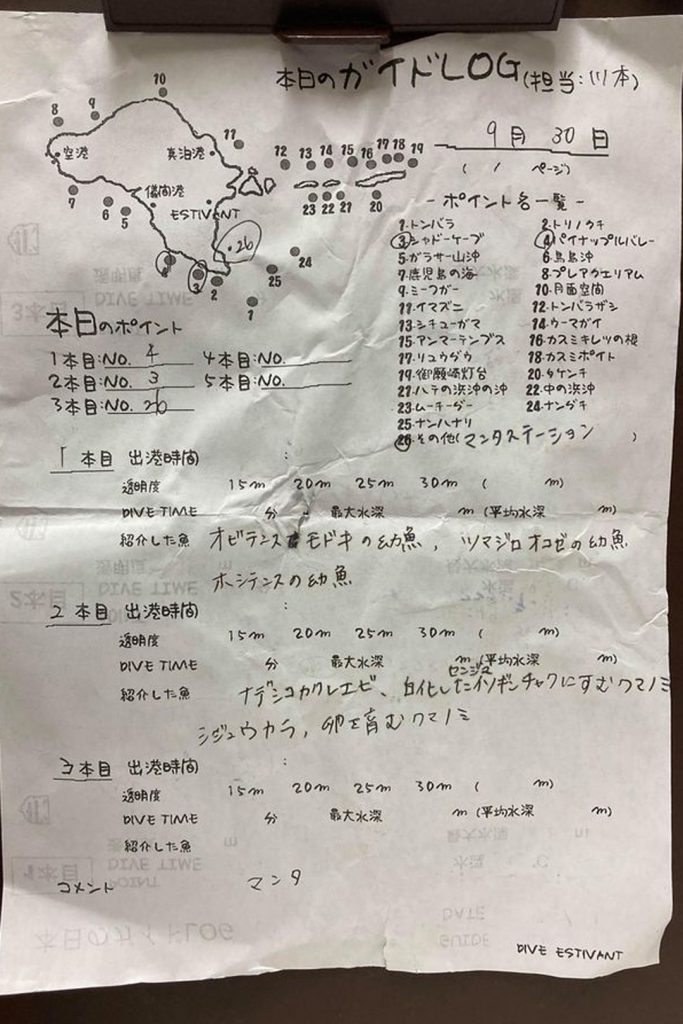 本日のガイドLOG(担当:川本)
9月 30日
( / ページ)
10
9
8
空港
真泊港
11
12 13 14 15 16 17 18 19
7
6
5
儀間港
ESTIVANT
23 22 21 20
26
4
3
2
1
25
24
- ポイント名一覧 -
1.トンバラ 2.トリノクチ
3.シャドーケーブ 4.パイナップルバレー
5.ガラサー山沖 6.鳥島沖
7.鹿児島の海 8.プレアクエリアム
9.ミーフガー 10.月面空間
11.イマズニ 12.トンバラザシ
13.シチューガマ 14.ウーマガイ
15.アンマーテンプス 16.カスミキレツの根
17.リュウグウ 18.カスミポイト
19.御願崎灯台 20.タケンチ
21.ハテの浜沖の沖 22.中の浜沖
23.ムーチーグー 24.ナングチ
25.ナンハナリ
26.その他(マンタステーション )
本日のポイント
1本目:NO. 4 4本目:NO.
2本目:NO. 3 5本目:NO.
3本目:NO. 26
1本目 出港時間 :
透明度 15m 20m 25m 30m ( m)
DIVE TIME 分 最大水深 m (平均水深 m)
紹介した魚 オビテンスモドキの幼魚, ツマジロオコゼの幼魚
ホシテンスの幼魚
2本目 出港時間 :
透明度 15m 20m 25m 30m ( m)
DIVE TIME 分 最大水深 m (平均水深 m)
センジュ
紹介した魚 ナデシコカクレエビ、白化したイソギンチャクにすむクマノミ
シジュウカラ, 卵を育むクマノミ
3本目 出港時間 :
透明度 15m 20m 25m 30m ( m)
DIVE TIME 分 最大水深 m (平均水深 m)
紹介した魚
コメント マンタ
DIVE ESTIVANT